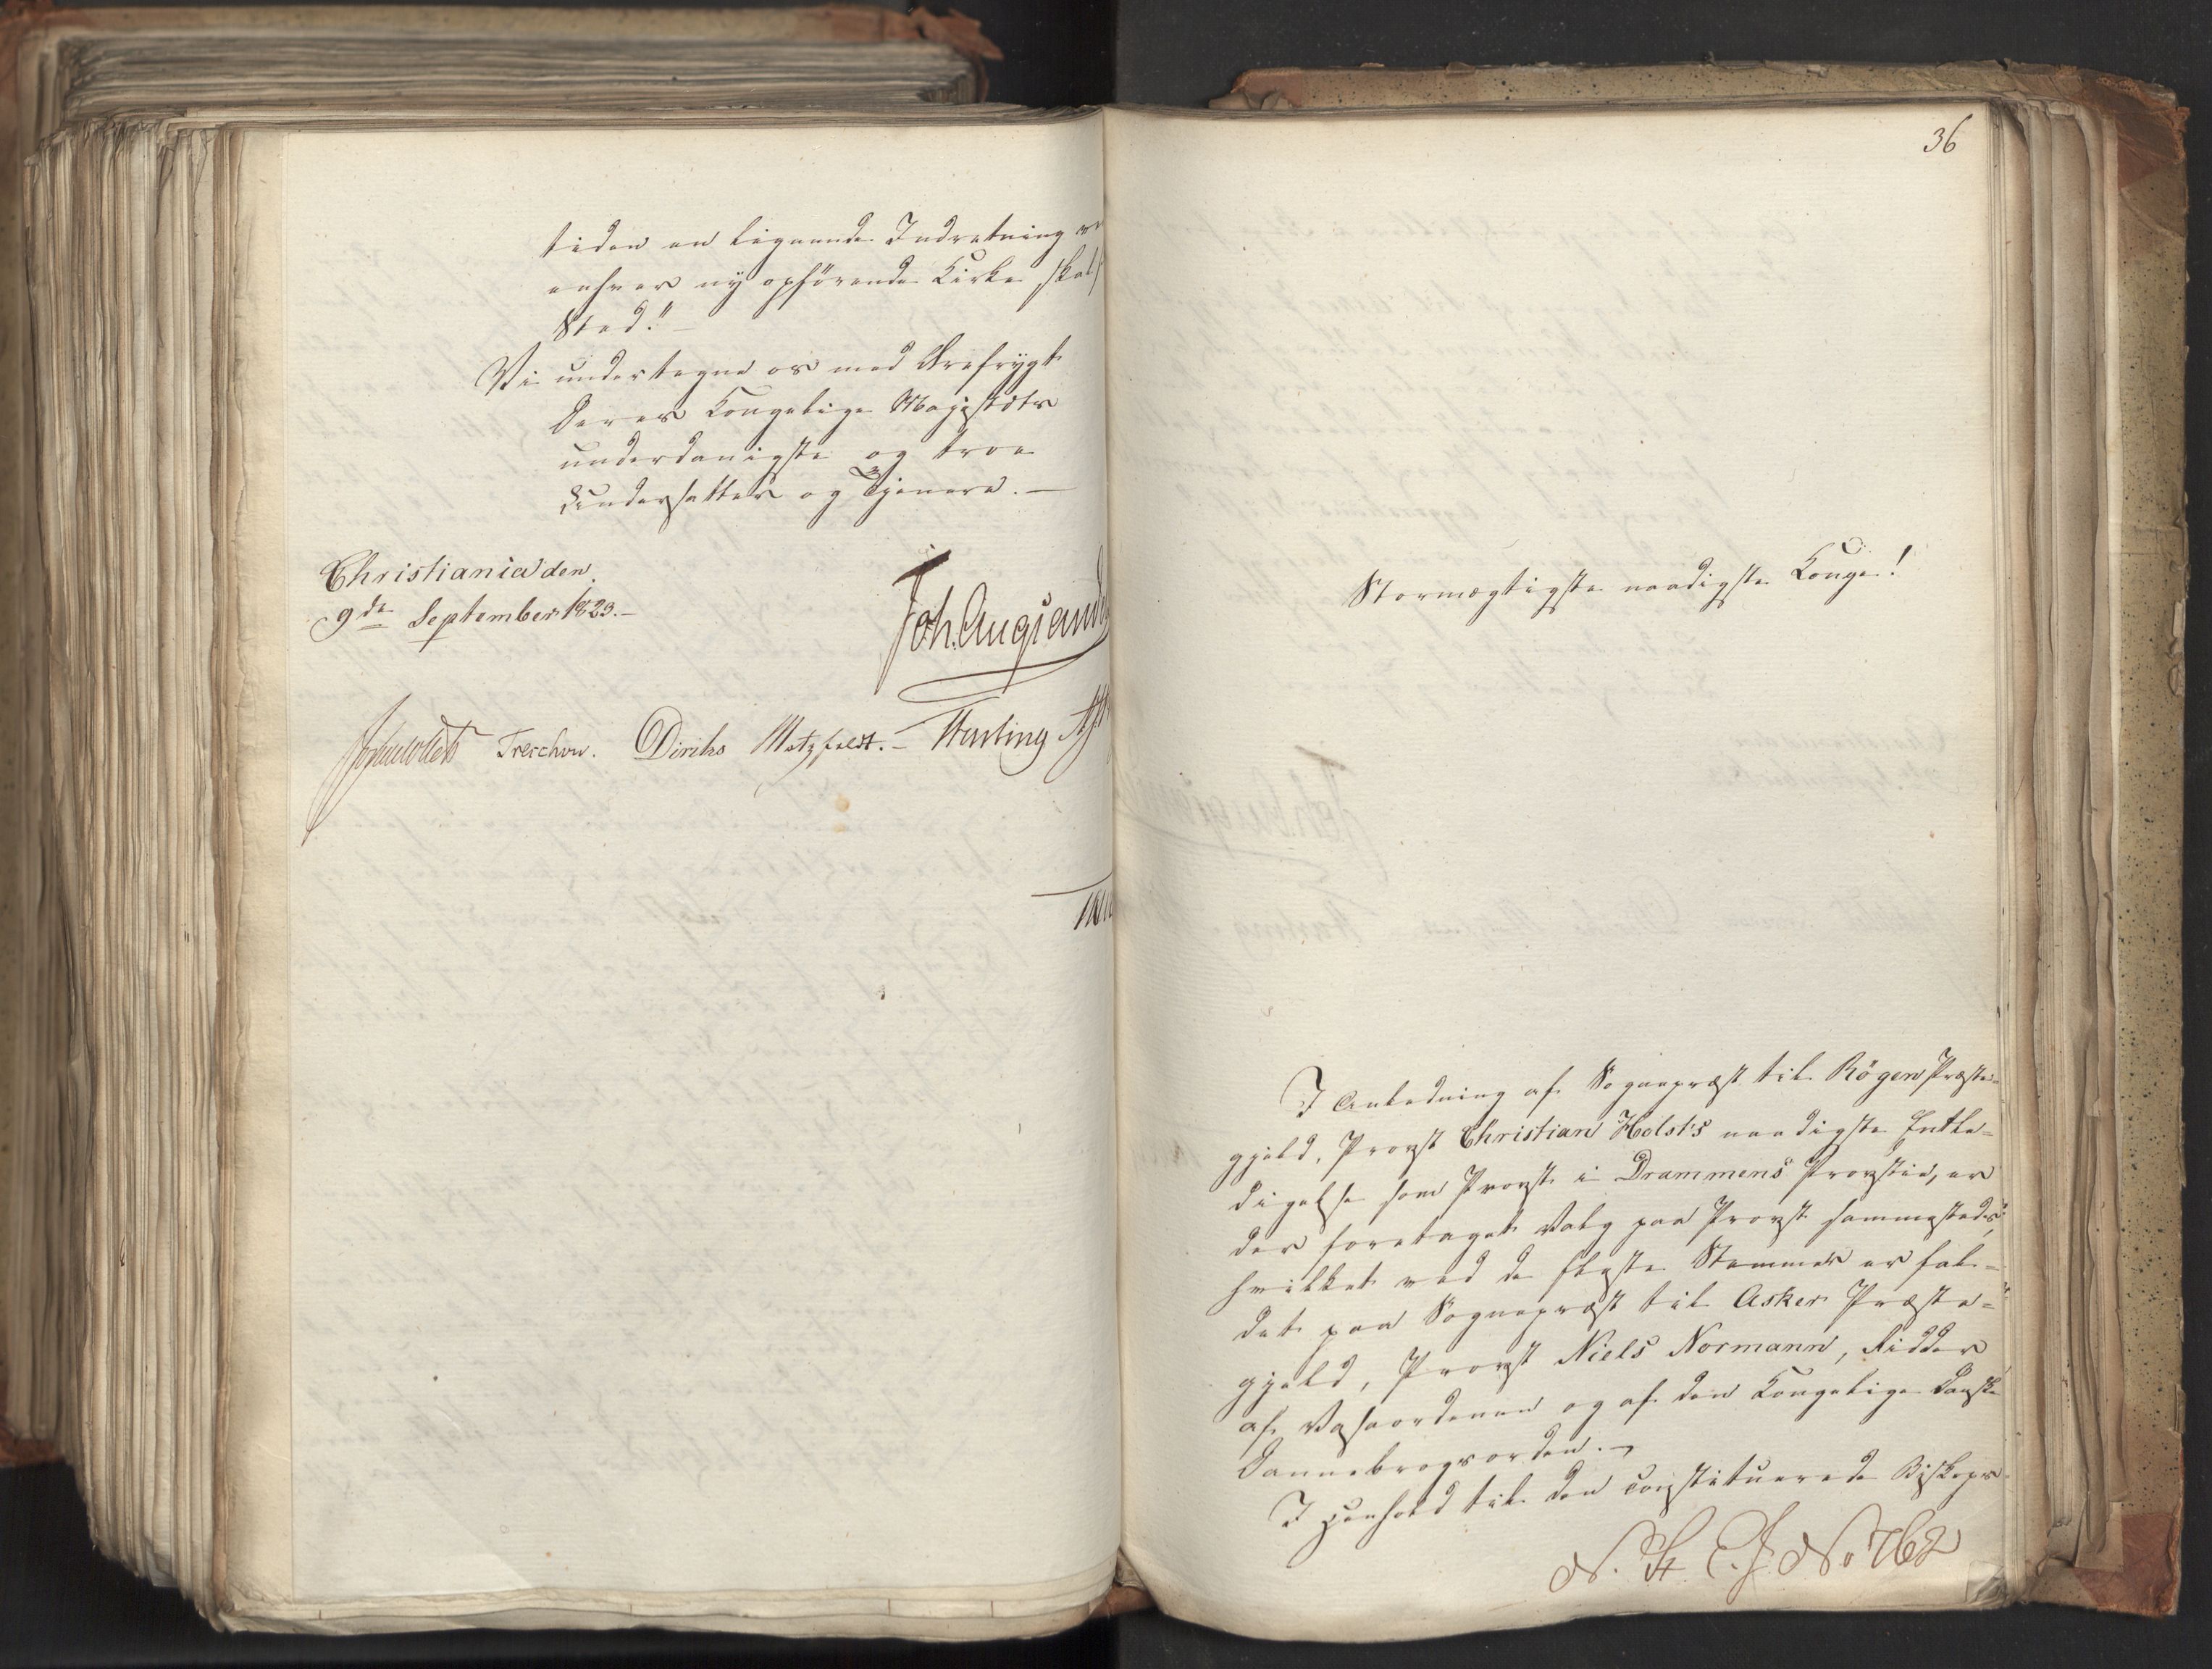 tiden en lignende Indretning ve
enhver ny opförende Kirke skal f
Sted."—
Vi undertegne os med Ærefrygt
Deres Kongelige Majestæts
underdanigste og troe
Undersatter og Tjenere.—
Christiania den
9de September 1823.—
Joh. Aug. Sand
Treschow. Diriks Motzfeldt.—
36
Stormægtigste naadigste Konge!
I Anledning af Sognepræst til Rögen Præste-
gjeld, Provst Christian Holst's naadigste Entle-
digelse som Provst i Drammens Provstie, er
der foretaget Valg paa Provst sammesteds,
hvilket med de fleste Stemmer er fal-
det paa Sognepræst til Asker Præste-
gjeld, Provst Niels Normann, Ridder
af Vasaordenen og af den Kongelige Danske
Dannebrogsorden.—
I Henhold til den constituerede Biskops
N. St. C. J. No 762